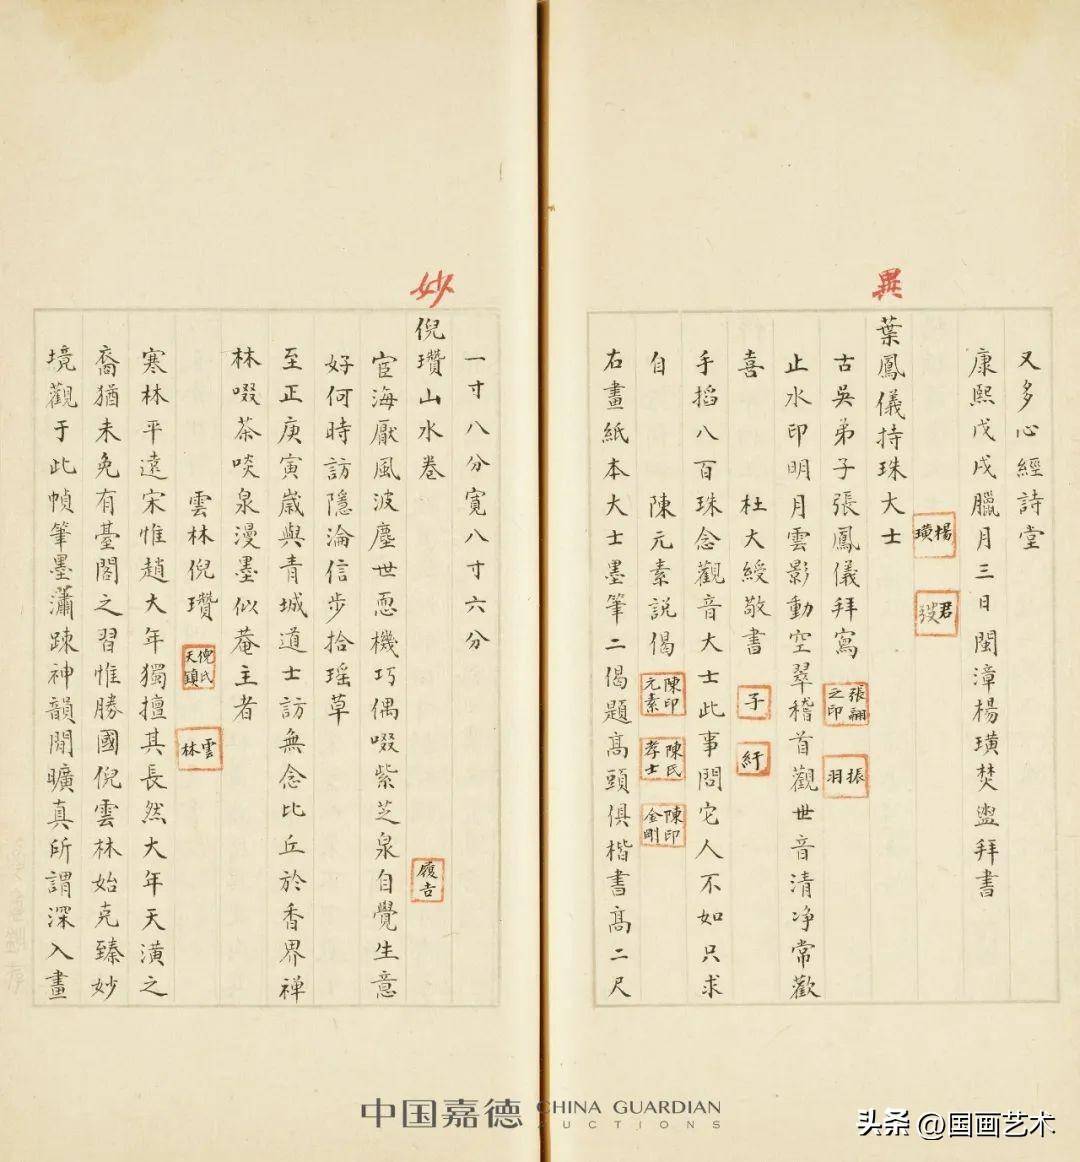 又多心經詩堂
康熙戊戌臘月三日閩漳楊璜焚盥拜書
楊璜
異
葉鳳儀持珠大士
古吳弟子張鳳儀拜寫
張翮之印
張羽
止水印明月雲影動空翠稽首觀世音清净常歡
喜 杜大綬敬書
子
紆
手搯八百珠念觀音大士此事問它人不如只求
自 陳元素說偈
陳印元素
陳氏孝士
陳印金剛
右畫紙本大士墨筆二偈題髙頭俱楷書髙二尺
一寸八分寬八寸六分
妙
倪瓚山水卷
履吉
宦海厭風波塵世悪機巧偶啜紫芝泉自覺生意
好何時訪隱淪信步拾瑶草
至正庚寅嵗與青城道士訪無念比丘於香界禅
林啜茶啖泉漫墨似菴主者
雲林倪瓚
倪氏天鎮
雲林
寒林平遠宋惟趙大年獨擅其長然大年天潢之
裔猶未免有臺閣之習惟勝國倪雲林始克臻妙
境觀于此幀筆墨瀟踈神韻閒曠真所謂深入畫
中国嘉德 CHINA GUARDIAN
AUCTIONS
头条 @国画艺术